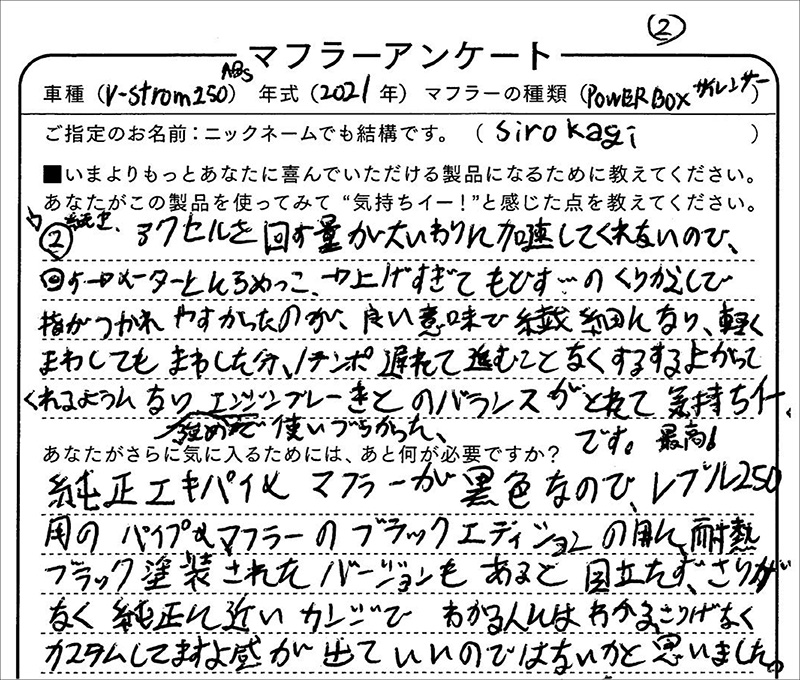 ②
マフラーアンケート
車種(V-strom250 ABS) 年式(2021年) マフラーの種類(POWERBOX サイレンサー)
ご指定のお名前:ニックネームでも結構です。( sirokagi )
■いまよりもっとあなたに喜んでいただける製品になるために教えてください。
あなたがこの製品を使ってみて“気持ちイー!”と感じた点を教えてください。
② 純正、アクセルを回す量が大いわりに加速してくれないので、
回す→メーターとにらめっこ、→上げすぎてもどす…のくりかえしで
指がつかれやすかったのが、良い意味で繊細になり、軽く
まわしてもまわした分、1テンポ遅れて進むことなくするする上がって
くれるようになりエンジンブレーキとのバランスがとれて気持ちイー、
強めで使いづらかった、 です。最高!
あなたがさらに気に入るためには、あと何が必要ですか?
純正エキパイ& マフラーが黒色なので、レブル250
用のパイプ&マフラーのブラックエディションの用に、耐熱
ブラック塗装されたバージョンもあると目立たず、さりげ
なく純正に近いカンジでわかる人にはわかる、さりげなく
カスタムしてますよ感が出ていいのではないかと思いました。